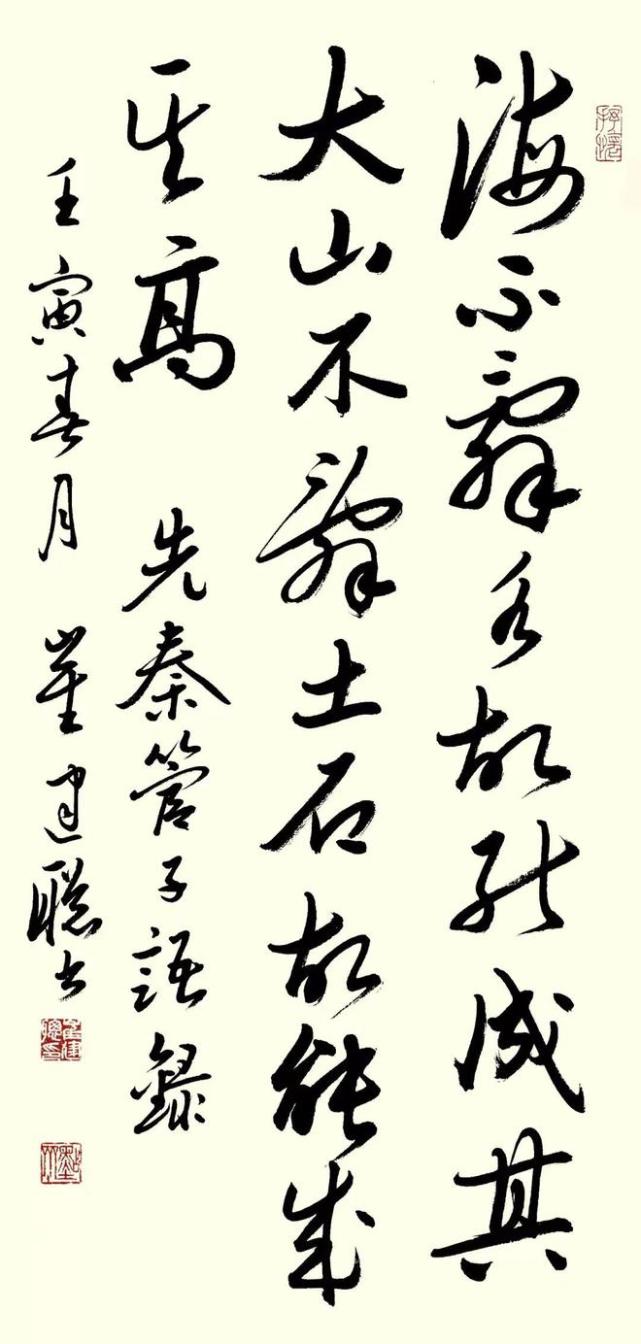 海不辭水故能成其
大山不辭土石故能成
其高 先秦管子語錄
壬寅春月 崔建聰書